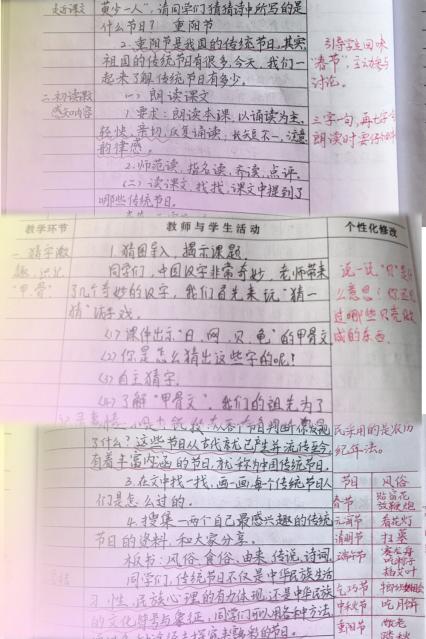 走近课文
少一人”，请同学们猜猜诗中所写的是
什么节日？ 重阳节
2.重阳节是我国的传统节日，其实
祖国的传统节日有很多，今天，我们一
起来了解传统节日有多少。
引导学生回味
“春节”，
讨论。
二、初读课
感知内容
(一) 朗读课文
1.要求：朗读本课，以诵读为主，
轻快、亲切，反复诵读，注意
韵律感。
2.师范读，指名读，齐读，点评。
(二) 读课文，找找，课文中提到了
哪些传统节日。
三字一句，再七字
朗读时要
教学环节 教师与学生活动 个性化修改
一、猜字激
趣，识记
“甲骨”
1.猜图导入，揭示课题。
同学们，中国汉字非常奇妙，老师带来
了几个奇妙的汉字，我们首先来玩“猜一
猜”游戏。
(1)课件出示“日、网、贝、龟”的甲骨文
(2)你是怎么猜出这些字的呢！
(3)自主猜字
(4)了解“甲骨文”，我们的祖先为了
说一说“贝”是什
么意思！你还见
过哪些贝壳做
成的东西
了什么？这些节日从古代就已产生并流传至今，
有着丰富内涵的节日，就称为中国传统节日。
3.在文中找一找，画一画每个传统节日人
们是怎么过的。
4.搜集一两个自己最感兴趣的传统
节日的资料，和大家分享。
板书：风俗、食俗、由来、传说、诗词
同学们，传统节日不仅是中华民族生活
习性、民族心理的有力体现，还是中华民族
的文化解考与象征，同学们可以用各种方法
民采用的是农历
纪年法。
节日 风俗
春节 贴窗花
放鞭炮
元宵节 看花灯
清明节 扫墓
端午节 赛龙舟
吃粽子
插艾叶
乞巧节
中秋节 吃月饼
重阳节 敬老